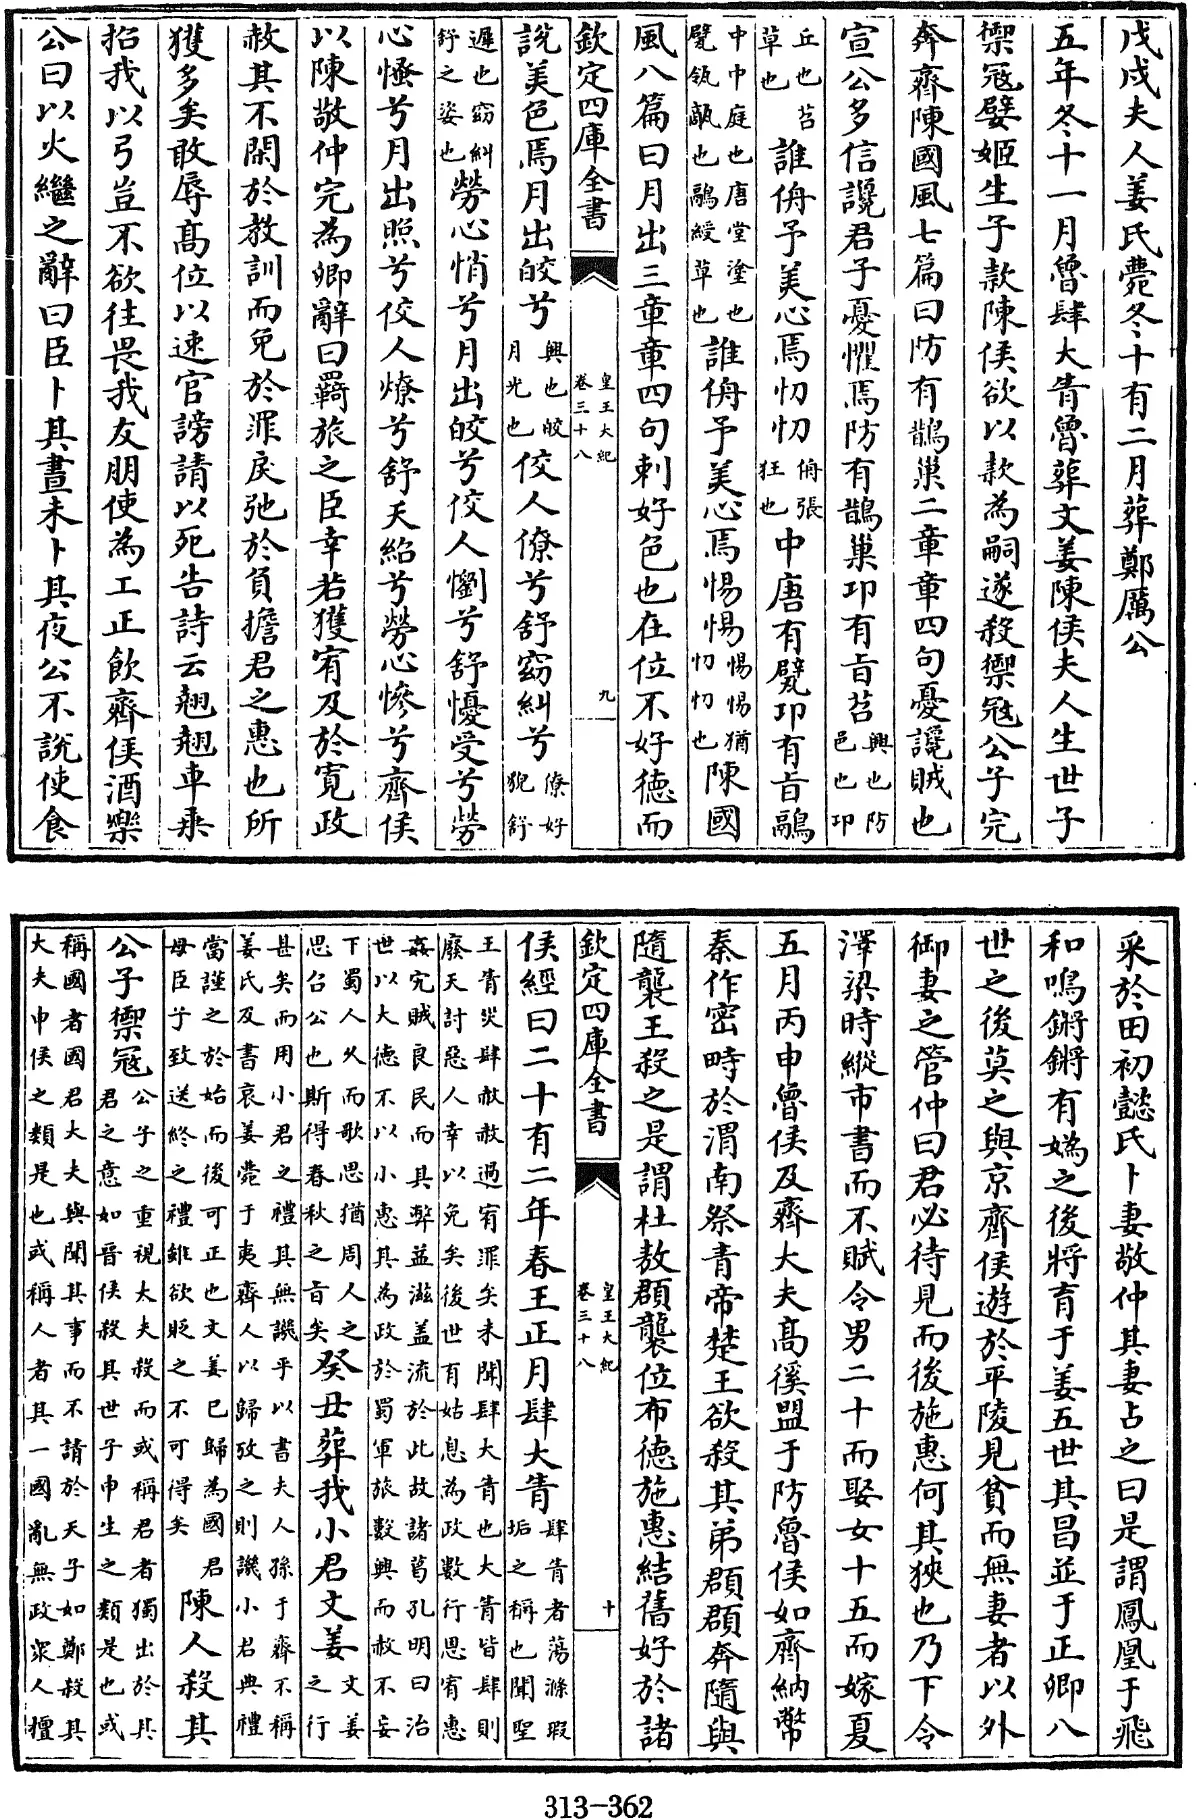 戊戌夫人姜氏薨冬十有二月葬鄭厲公
五年冬十一月魯肆大眚魯葬文姜陳侯夫人生世子
禦冦嬖姬生子款陳侯欲以款為嗣遂殺禦冦公子完
奔齊陳國風七篇曰防有鵲巢二章章四句憂讒賊也
宣公多信讒君子憂懼焉防有鵲巢卭有旨苕興也防邑也卭
丘也苕草也誰侜予美心焉忉忉侜張狂也中唐有甓卭有旨鷊
中中庭也唐堂塗也甓瓴甋也鷊綬草也誰侜予美心焉惕惕惕惕猶忉忉也陳國
風八篇曰月出三章章四句刺好色也在位不好德而
欽定四庫全書 皇王大紀 卷三十八 九
說美色焉月出皎兮興也皎月光也佼人僚兮舒窈糾兮僚好貌舒
遲也窈糾舒之姿也勞心悄兮月出皎兮佼人懰兮舒懮受兮勞
心慅兮月出照兮佼人燎兮舒夭紹兮勞心慘兮齊侯
以陳敬仲完為卿辭曰羇旅之臣幸若獲宥及於寛政
赦其不閑於教訓而免於罪戾弛於負擔君之惠也所
獲多矣敢辱髙位以速官謗請以死告詩云翹翹車乗
招我以弓豈不欲往畏我友朋使為工正飲齊侯酒樂
公曰以火繼之辭曰臣卜其晝未卜其夜公不說使食
采於田初懿氏卜妻敬仲其妻占之曰是謂鳳凰于飛
和鳴鏘鏘有媯之後將育于姜五世其昌並于正卿八
世之後莫之與京齊侯遊於平陵見貧而無妻者以外
御妻之管仲曰君必待見而後施惠何其狹也乃下令
澤梁時縱市書而不賦令男二十而娶女十五而嫁夏
五月丙申魯侯及齊大夫髙徯盟于防魯侯如齊納幣
秦作密畤於渭南祭青帝楚王欲殺其弟頵頵奔隨與
隨襲王殺之是謂杜敖頵襲位布德施惠結舊好於諸
欽定四庫全書 皇王大紀 卷三十八 十
侯經曰二十有二年春王正月肆大眚肆眚者蕩滌瑕垢之稱也聞聖
王眚災肆赦赦過宥罪矣未聞肆大眚也大眚皆肆則廢天討惡人幸以免矣後世有姑息為政數行恩宥惠
姦宄賊良民而其弊益滋蓋流於此故諸葛孔明曰治世以大德不以小惠其為政於蜀軍旅數興而赦不妄
下蜀人久而歌思猶周人之思召公也斯得春秋之旨矣癸丑葬我小君文姜文姜之行
甚矣而用小君之禮其無譏乎以書夫人孫于齊不稱姜氏及書哀姜薨于夷齊人以歸攷之則譏小君典禮
當謹之於始而後可正也文姜已歸為國君母臣子致送終之禮雖欲貶之不可得矣陳人殺其
公子禦冦公子之重視大夫殺而或稱君者獨出於其君之意如晉侯殺其世子申生之類是也或
稱國者國君大夫與聞其事而不請於天子如鄭殺其大夫申侯之類是也或稱人者其一國亂無政衆人擅
313-362